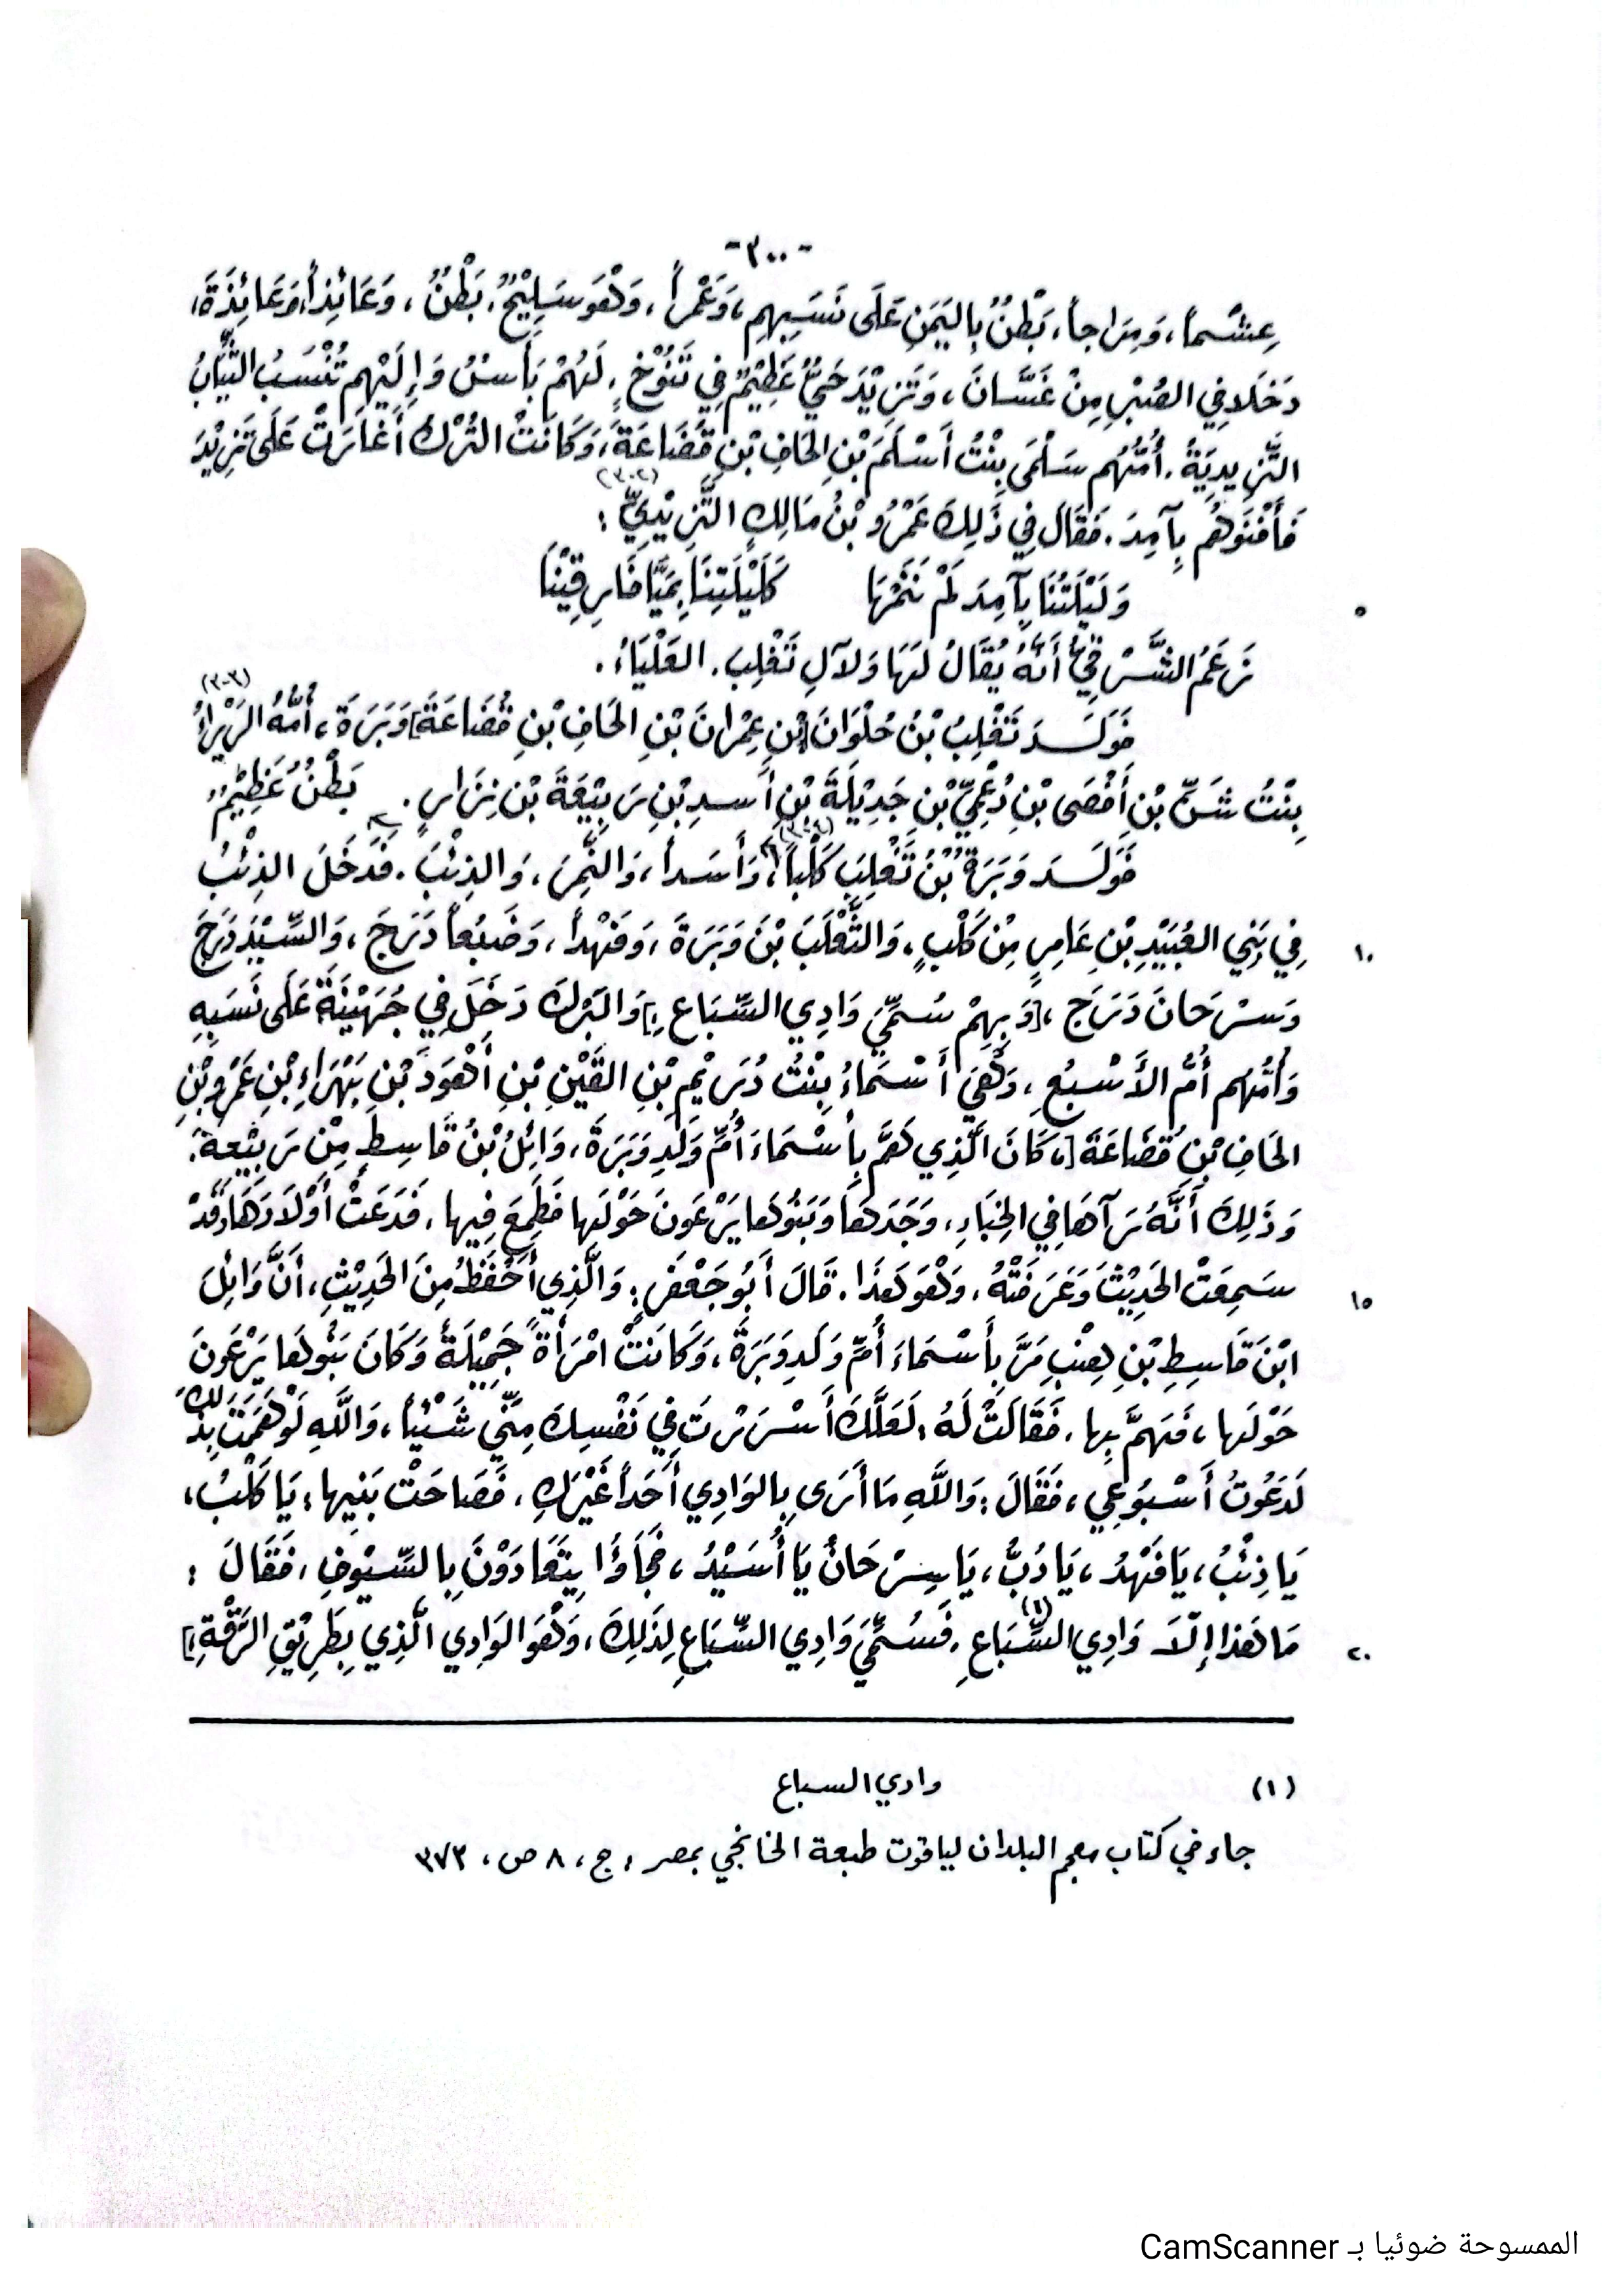 -٣٠٠-
عِشْماً، وَمِرَاجاً، بَطْنٌ بِاليَمَنِ عَلَى نَسَبِهِم، وَعَمْراً، وَهُوَ سَلِيْحٌ، بَطْنٌ، وَعَائِذاً، وَعَائِذَةَ،
دَخَلَا فِي الصُّبْرِ مِنْ غَسَّانَ، وَتَزِيْدَ حَيٌّ عَظِيْمٌ فِي تَنُوْخٍ، لَهُمْ بَأسٌ وَإِلَيْهِم تُنْسَبُ الثِّيَابُ
التَّزِيدِيَةُ. أُمُّهُم سَلْمَى بِنْتُ أَسْلَمَ بْنِ الحَافِ بْنِ قُضَاعَةَ، وَكَانَتْ التُّرْكُ أَغَارَتْ عَلَى تَزِيْدَ
(٣٠٢)
فَأَفْنَوهُم بِآمِدَ. فَقَالَ فِي ذَلِكَ عَمْرُو بْنُ مَالِكٍ التَّزِيْدِيِّ :
وَلَيْلَتُنَا بِآمِدَ لَمْ نَنَمْهَا كَلَيْلَتِنَا بِمَيَّافَارِقِيْنَا
٥
زَعَمَ الشَّرْقِيُّ أَنَّهُ يُقَالُ لَهَا وَلآلِ تَغْلِبَ. العَلْيَاءُ.
(٣٠٣)
فَوَلَدَ تَغْلِبُ بْنُ حُلْوَانَ [بْنِ عِمْرانَ بْنِ الحَافِ بْنِ قُضَاعَةَ] وَبَرَةَ، أُمُّهُ الرَّبْرَاءُ
بِنْتُ شَنِّ بْنِ أَفْصَى بْنِ دُعْمِيِّ بْنِ جَدِيْلَةَ بْنِ أَسدِ بْنِ رَبِيْعَةَ بْنِ نِزَارٍ. بَطْنٌ عَظِيْمٌ
(٣٠٤)
فَوَلَدَ وَبَرَةُ بْنُ تَغْلِبَ كَلْباً، وَأَسَداً، وَالنَّمِرَ، وَالذِئْبَ. فَدَخَلَ الذِئْبُ
فِي بَنِي العُبَيْدِ بْنِ عَامِرٍ مِنْ كَلْبٍ، وَالثَّعْلَبَ بْنَ وَبَرَةَ، وَفَهْداً، وَضَبُعاً دَرَجَ، وَالسِّيْدَ دَرَجَ
١٠
وَسِرْحَانَ دَرَجَ، [وَبِهِمْ سُمِّيَ وَادِي السِّبَاعِ،] وَالبَرْكَ دَخَلَ فِي جُهَيْنَةَ عَلَى نَسَبِهِ
وَأُمُّهُم أُمُّ الأَسْبُعِ، وَهْيَ أَسْمَاءُ بِنْتُ دُرَيْمِ بْنِ القَيْنِ بْنِ أَهْوَدَ بْنِ بَهْرَاءِ بْنِ عَمْرِو بْنِ
الحَافِ بْنِ قُضَاعَةَ [، كَانَ الَّذِي هَمَّ بِأَسْمَاءَ أُمِّ وَلَدِ وَبَرَةَ، وَائِلُ بْنُ قَاسِطٍ مِنْ رَبِيْعَةَ.
وَذَلِكَ أَنَّهُ رَآهَا فِي الخِبَاءِ، وَجَدَهَا وَبَنُوهَا يَرْعَونَ حَوْلَها فَطَمِعَ فِيها، فَدَعَتْ أَوْلاَدَهَا، وَقَدْ
سَمِعَتْ الحَدِيْثَ وَعَرَفَتْهُ، وَهْوَ هَذَا. قَالَ أَبُو جَعْفَرٍ: وَالَّذِي أَحْفَظُ مِنَ الحَدِيْثِ، أَنَّ وَائِلَ
١٥
ابْنَ قَاسِطِ بْنِ هِنْبِ مَرَّ بِأَسْمَاءَ أُمِّ وَلَدِ وَبَرَةَ، وَكَانَتْ امْرَأَةً جَمِيْلَةً وَكَانَ بَنُوهَا يَرْعَونَ
حَوْلَها، فَهَمَّ بِها. فَقَالَتْ لَهُ: لَعَلَّكَ أَسْرَرْتَ فِي نَفْسِكَ مِنِّي شَيْئاً، وَاللَّهِ لَوْ هَمَمْتَ بِذَلِكَ
لَدَعَوتُ أَسْبُوعِي، فَقَالَ: وَاللَّهِ مَا أَرَى بِالوَادِي أَحَداً غَيْرَكِ، فَصَاحَتْ بَنِيها: يَا كَلْبُ،
يَا ذِئْبُ، يَا فَهْدُ، يَا دُبُّ، يَا سِرْحَانُ يَا أُسَيْدُ، فَجَاؤَا يَتَعَادَوْنَ بِالسِّيُوفِ، فَقَالَ :
مَا هَذا إِلَّا وَادِي السِّبَاعِ(١). فَسُمِّيَ وَادِي السِّبَاعِ لِذَلِكَ، وَهْوَ الوَادِي الَّذِي بِطَرِيْقِ الرَّقَّةِ.]
٢٠
(١) وادي السباع
جاء في كتاب معجم البلدان لياقوت طبعة الخانجي بمصر، ج، ٨ ص، ٣٧٣
الممسوحة ضوئيا بـ CamScanner